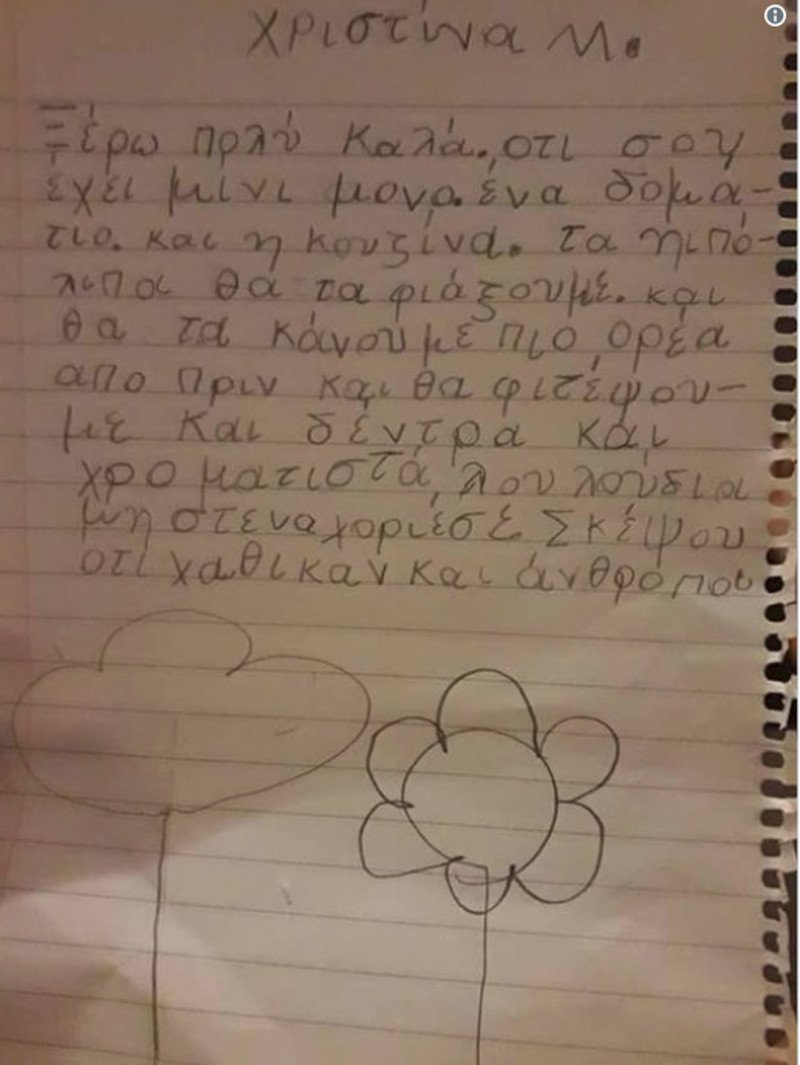 χριστίνα Μ.
Ξέρω πολύ καλά., οτι σου
έχει μίνι μονο. ένα δομα-
τιο. και η κουζίνα. τα ηιπό-
λιπα θα τα φιάξουμε. και
θα τα κάνουμε πιο ορέα
απο πριν και θα φιτέψου-
με και δέντρα και
χροματιστά, λουλούδια
μη στεναχοριέσε. Σκέψου
οτι χαθικαν και άνθρόποι